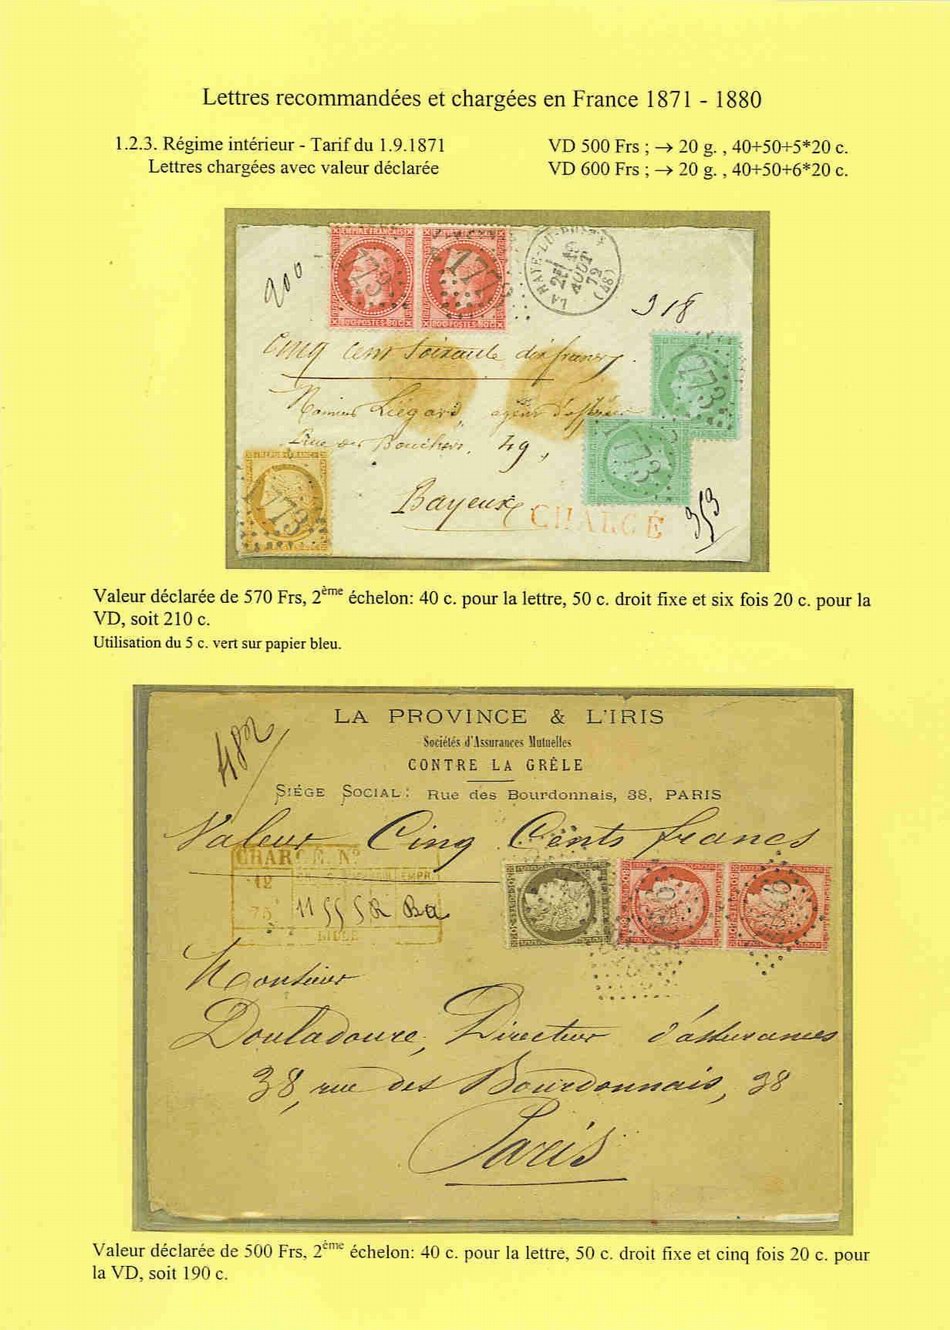 Lettres recommandées et chargées en France 1871 - 1880
1.2.3. Régime intérieur - Tarif du 1.9.1871
Lettres chargées avec valeur déclarée
VD 500 Frs ; → 20 g. , 40+50+5*20 c.
VD 600 Frs ; → 20 g. , 40+50+6*20 c.
EMPIRE FRANC
1773
177
80 POSTES 80
80 POSTES 80
AOUT
72
(48)
900
318
Cinq cent Soixante dix francs.
Monsieur Liégard, agent d'affaires
Rue des Bouchers, 49,
1773
773
REPUB FRANC
1773
Bayeux
CHARGÉ
353
Valeur déclarée de 570 Frs, 2ème échelon: 40 c. pour la lettre, 50 c. droit fixe et six fois 20 c. pour la
VD, soit 210 c.
Utilisation du 5 c. vert sur papier bleu.
482
LA PROVINCE & L'IRIS
Sociétés d'Assurances Mutuelles
CONTRE LA GRÊLE
SIÉGE SOCIAL: Rue des Bourdonnais, 38, PARIS
Valeur Cinq Cents francs
CHARGÉ Nº
12
75
Monsieur
Douladoure, Directeur d'assurances
38, rue des Bourdonnais, 38
Paris
Valeur déclarée de 500 Frs, 2ème échelon: 40 c. pour la lettre, 50 c. droit fixe et cinq fois 20 c. pour
la VD, soit 190 c.